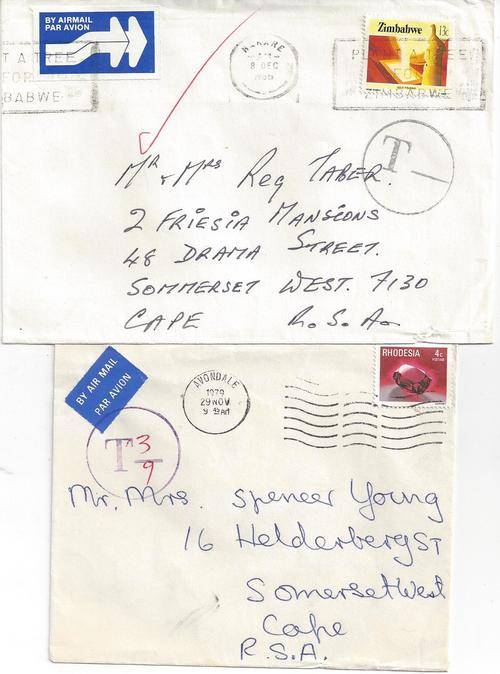 BY AIRMAIL
PAR AVION
Zimbabwe 13c
HARARE
8 DEC
T A TREE
FOR
BABWE
PLANT A TREE
FOR
ZIMBABWE
T
Mr & Mrs Reg Taber.
2 Friesia Mansions
48 Drama Street.
Sommerset West. 7130
Cape R.S.A.
BY AIR MAIL
PAR AVION
AVONDALE
1979
29 NOV
9 AM
RHODESIA 4c
T 3
9
Mr. Mrs. Spencer Young
16 Helderberg ST
Somerset West
Cape
R.S.A.